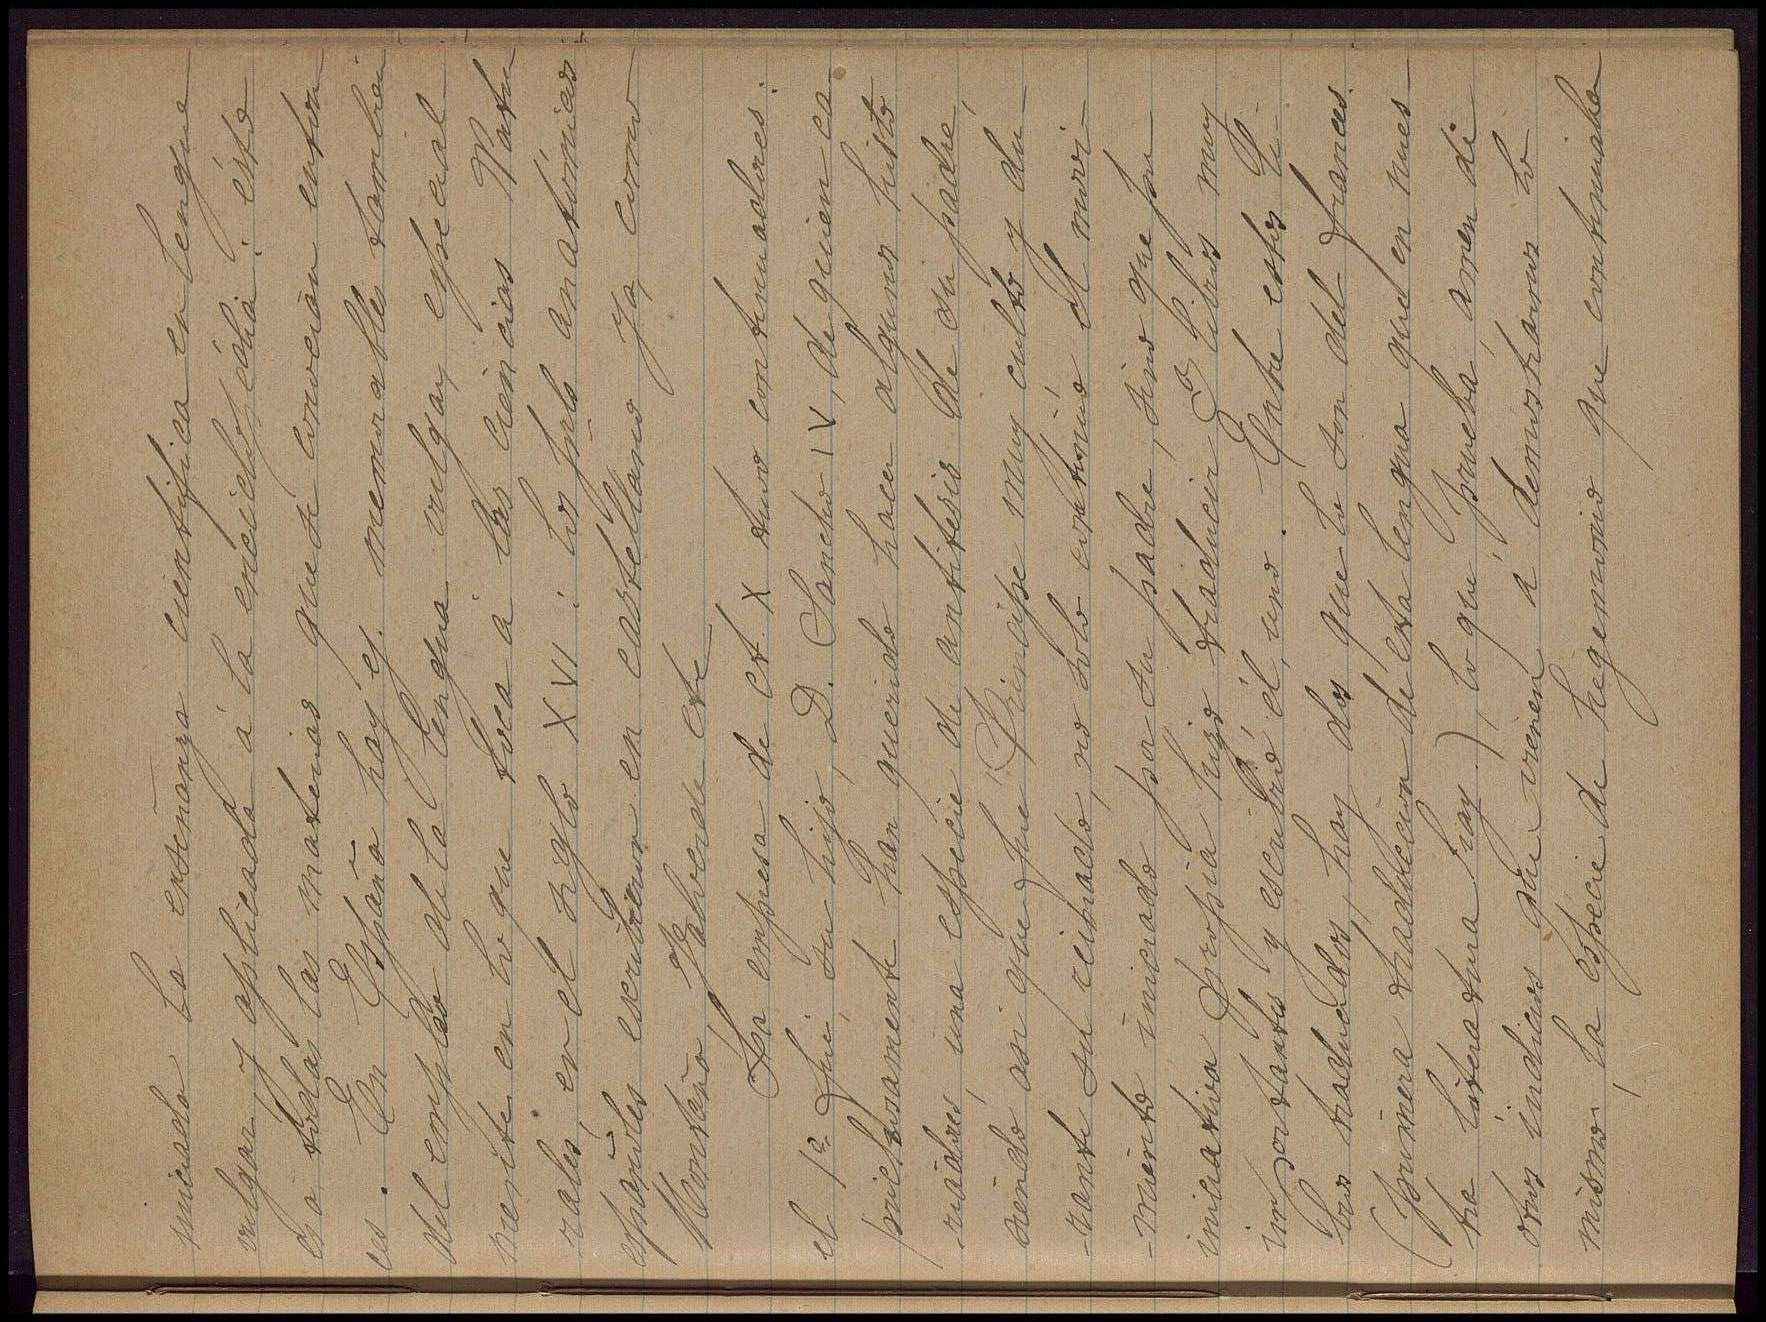 iniciado la enseñanza cientifica en lengua
vulgar y aplicada á la enciclopédia: ésto
es á todas las materias que se conocian enton
ces. En España hay ej. memorables tambien
del empleo de la lengua vulgar, especial
mente en lo que toca a las ciencias Natu
rales, en el siglo XVI: los ppls anatómicos
españoles escribieron en castellano ya, como
Montaña, Valverde etc
La empresa de Al. X tuvo continuadores.
el 1º fué su hijo, D. Sancho IV, de quien ca
prichosamente han querido hacer algunos histo
riadores una especie de antitesis de su padre,
siendo asi que fué Principe muy culto y du-
-rante su reinado, no solo continuó el movi-
-miento iniciado por su padre, sino que por
iniciativa propia hizo traducir 3 libros muy
importantes y escribió él, uno. Entre estos li-
bros traducidos, hay dos que lo son del frances.
(primera traduccion de esta lengua que en nues
tra literatura hay), lo que prueba amen de
otros indicios que vienen á demostrarnos lo
mismo, la especie de hegemonia que continuaba